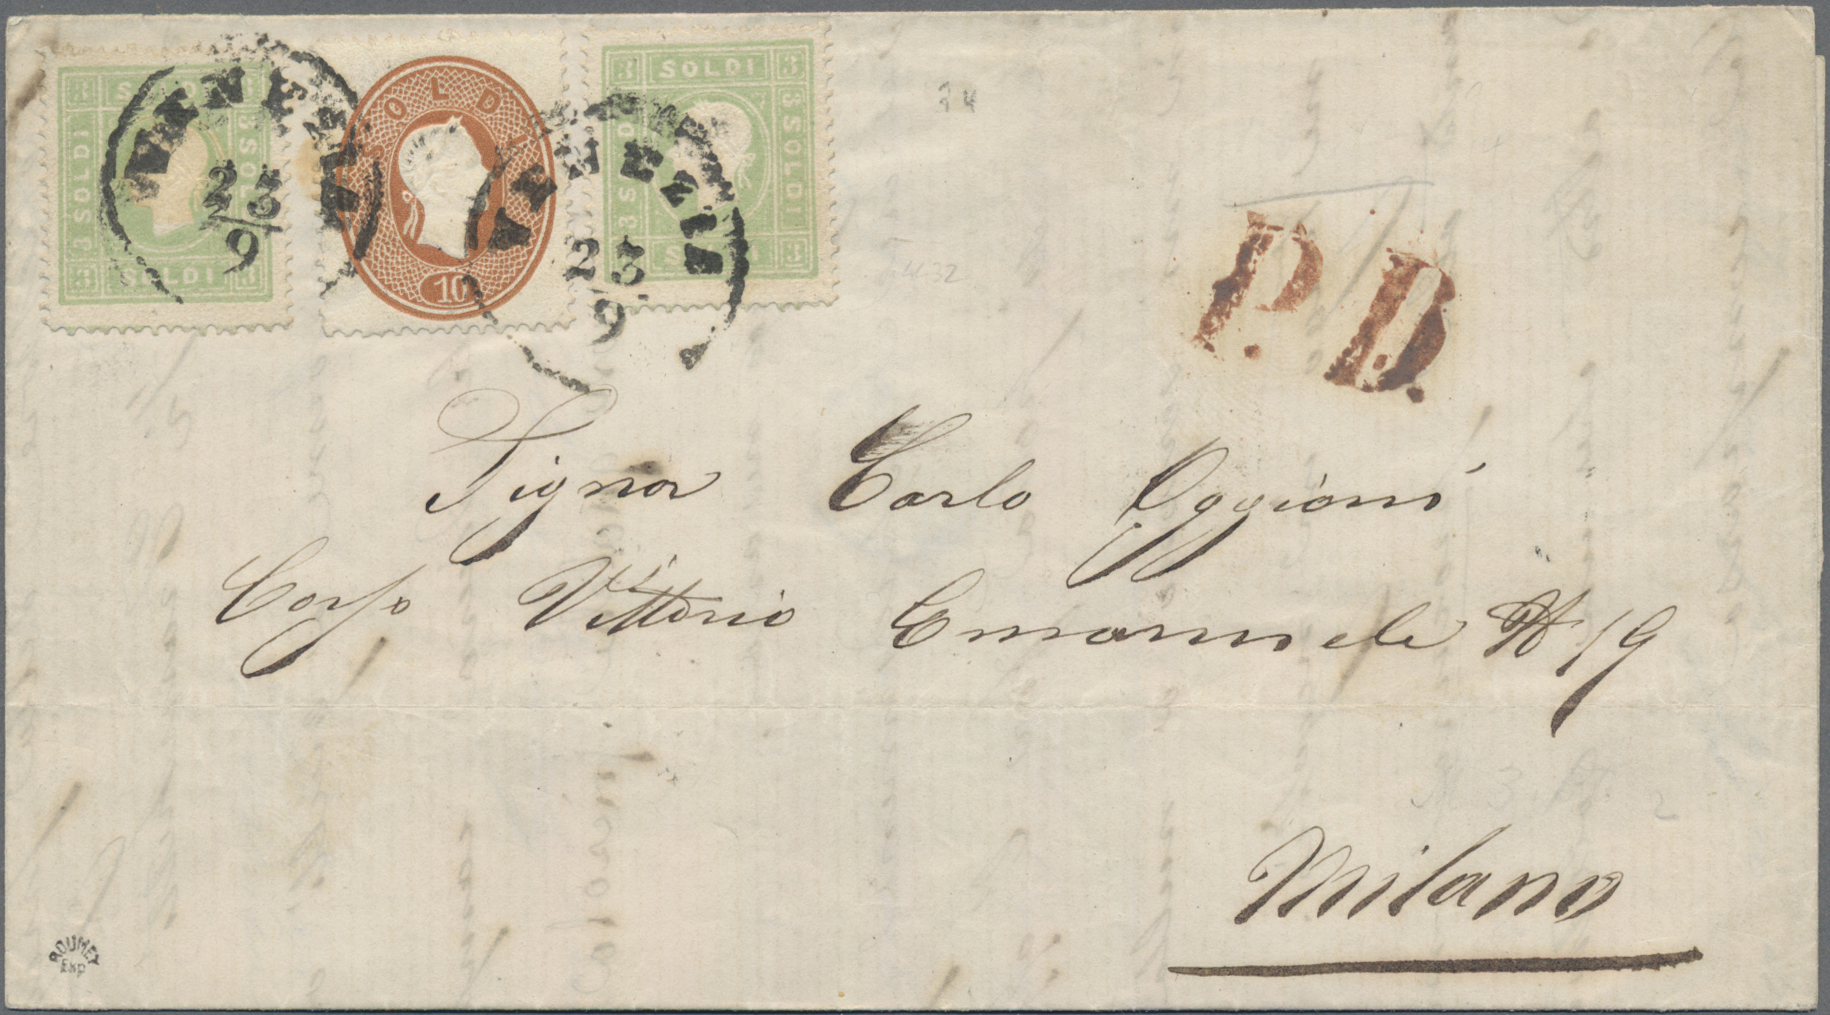 3 SOLDI 3
SOLDI
3 SOLDI
3 SOLDI 3
SOLDI
10
3 SOLDI 3
3 SOLDI
3
VENEZIA
23
9
VENEZIA
23
9
P.D.
Signor Carlo Oggioni
Corso Vittorio Emanuele N 19
Milano
ROUMET
Exp